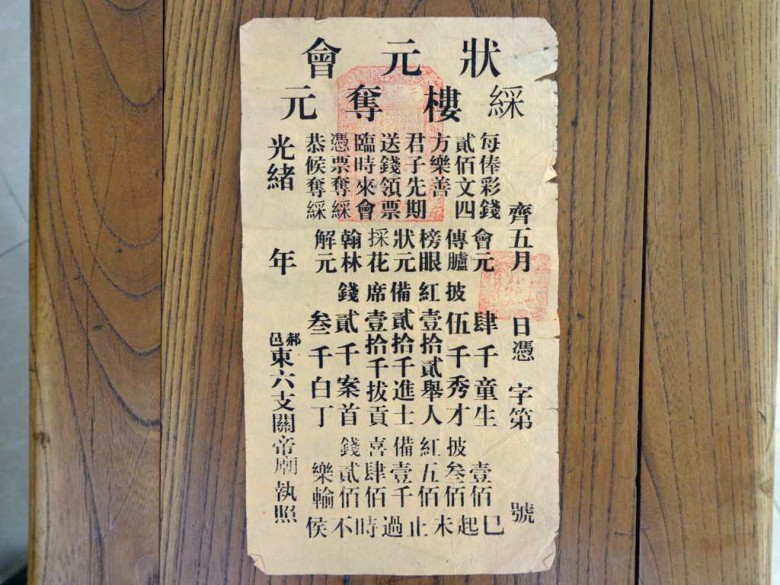 狀元會
綵樓奪元
齊五月 日憑 字第 號
每俸彩錢
貳佰文四
方樂善
君子先期
送錢領票
臨時來會
憑票奪綵
恭候奪綵
會元
傳臚
榜眼
狀元
採花
翰林
解元
披紅備席錢
肆千童生
伍千秀才
壹拾貳舉人
貳拾千進士
壹拾千拔貢
貳千案首
叁千白丁
披紅備喜錢
壹佰
叁佰
五佰
壹千
肆佰
貳佰
樂輸
巳起未止過時不侯
光緒 年 郝邑東六支關帝廟執照